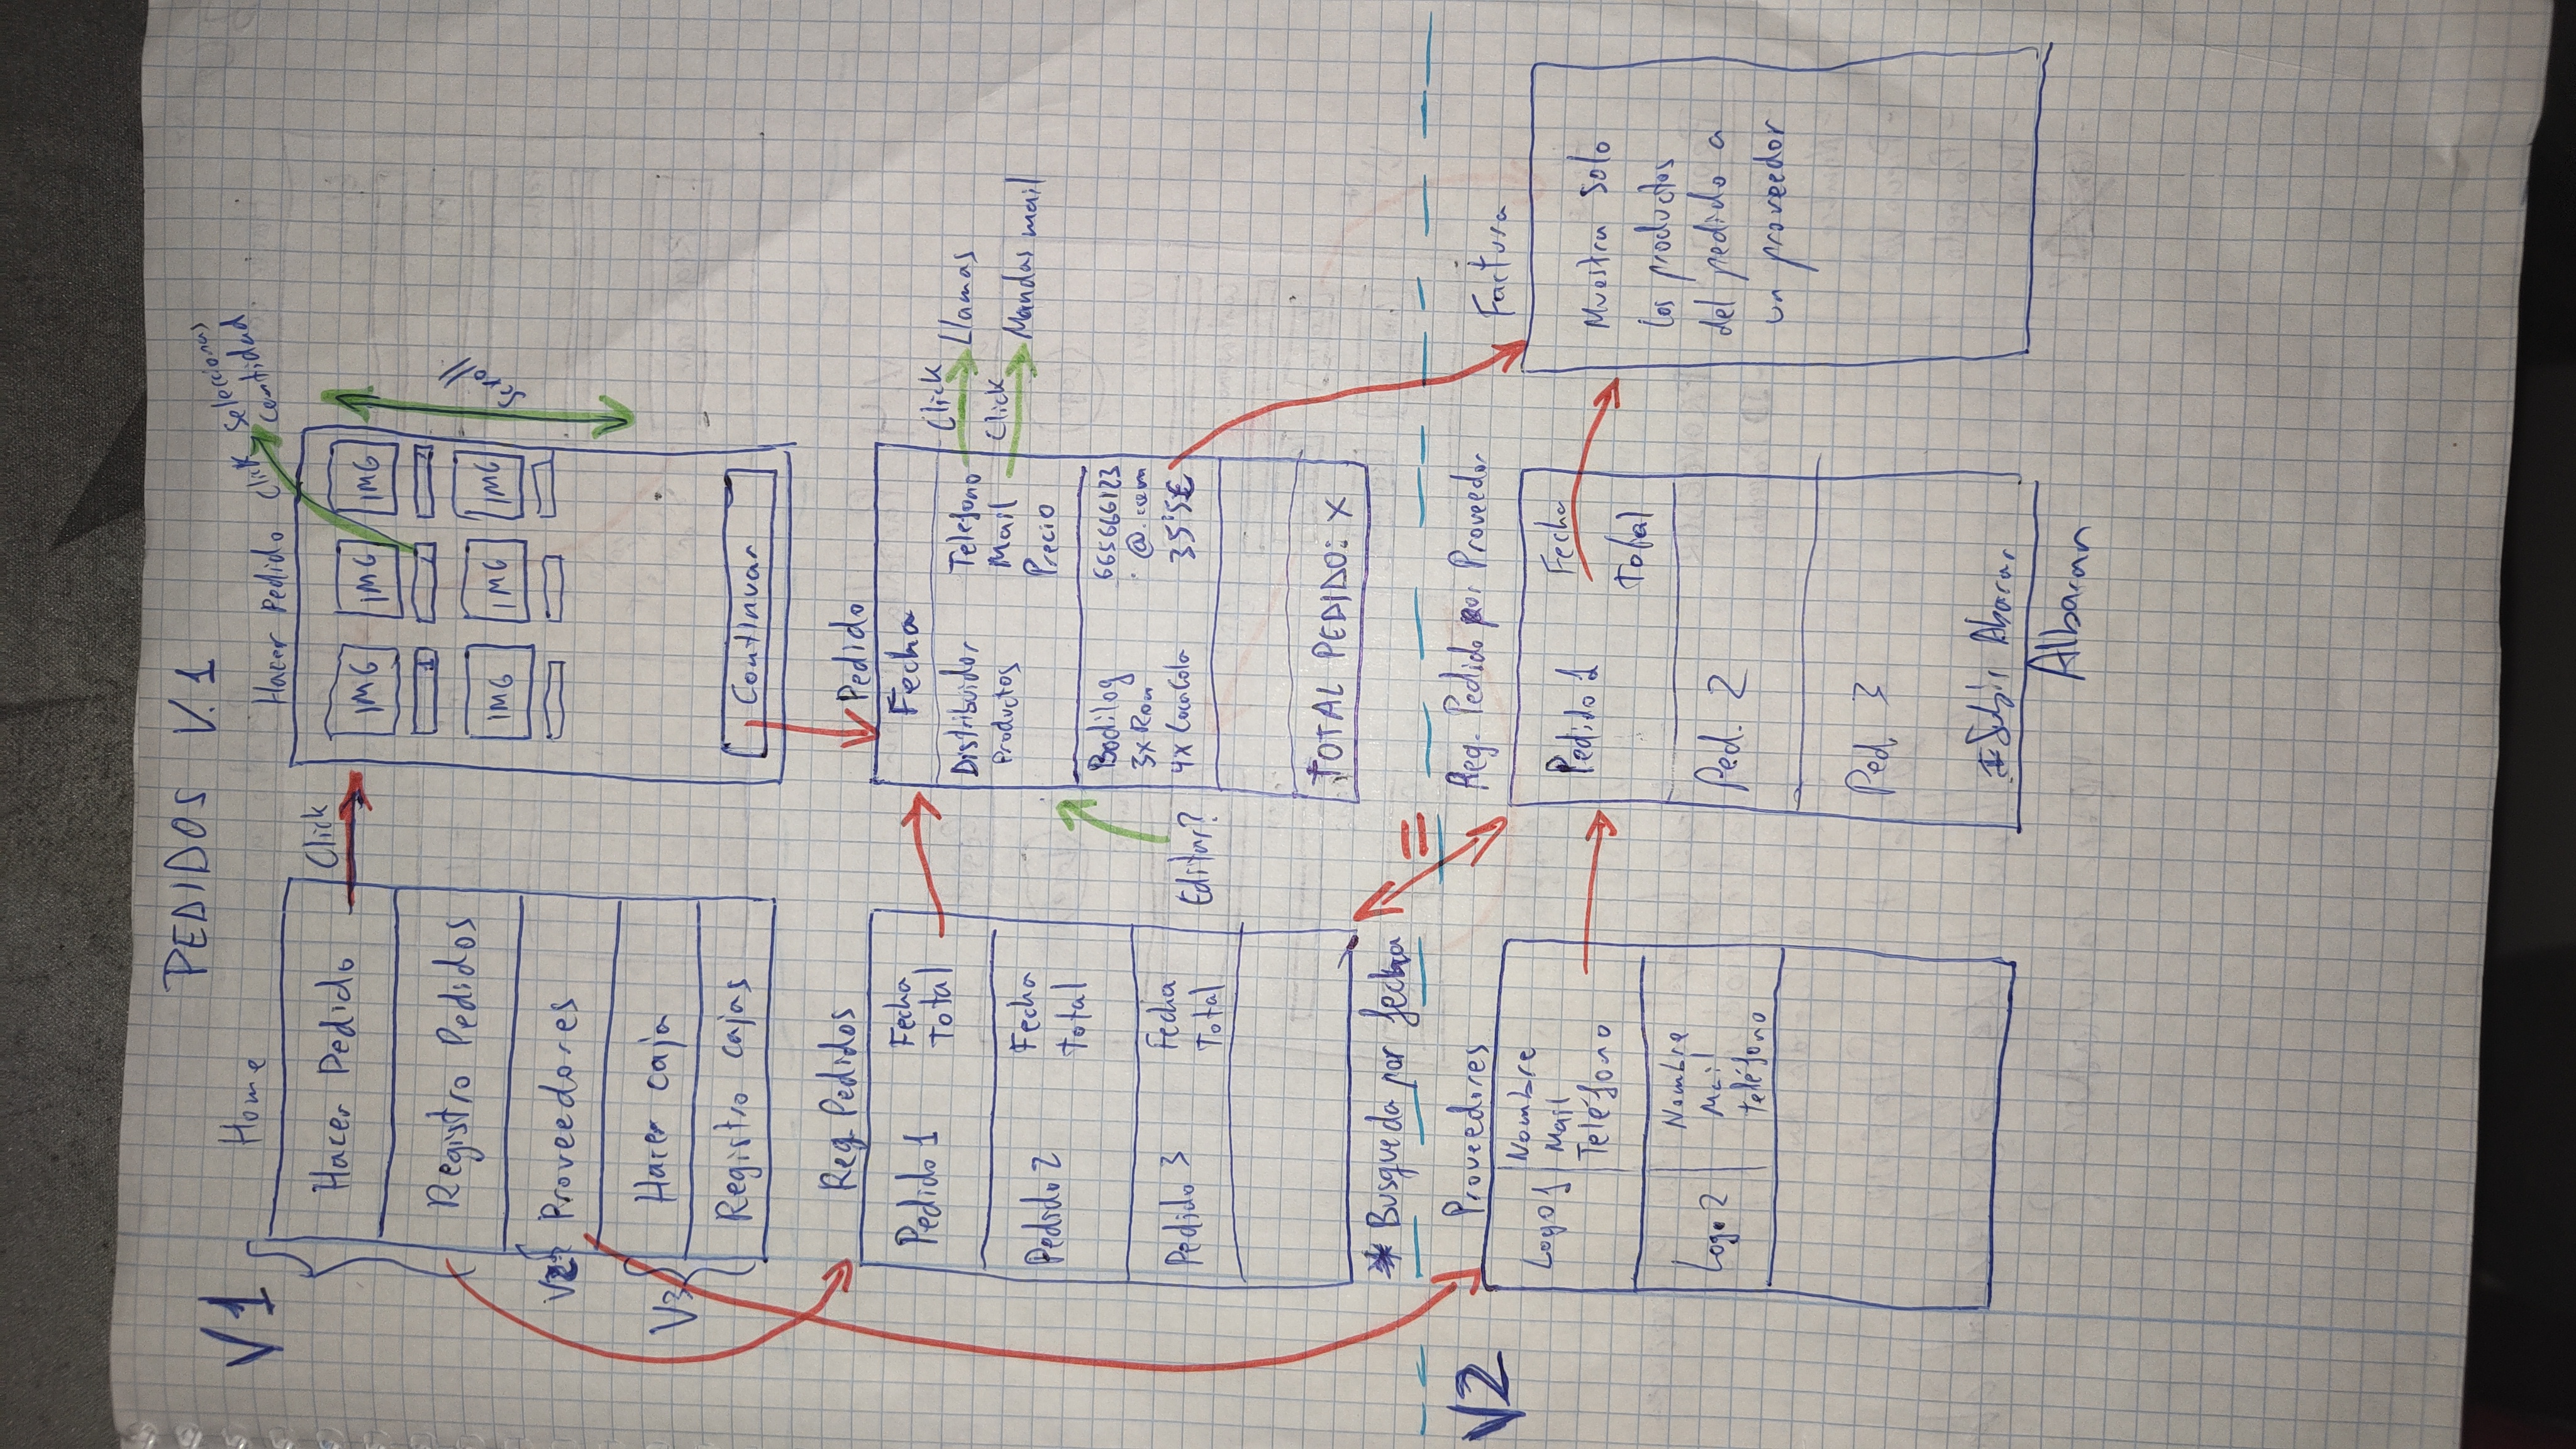 PEDIDOS V.1
V1
Home
Hacer Pedido
Registro Pedidos
V2
Proveedores
V3
Hacer caja
Registro cajas
Click
Hacer Pedido
Click
Seleccionas
cantidad
IMG IMG IMG
1
IMG IMG IMG
Scroll
Continuar
Reg. Pedidos
Pedido 1 Fecha
Total
Pedido 2 Fecha
Total
Pedido 3 Fecha
Total
* Busqueda por fecha
Editar?
Pedido
Fecha
Distribuidor Telefono
Productos Mail
Precio
Click Llamas
Click Mandas mail
Bodilog 665666123
3x Ron @.com
4x CocaCola 35'5€
TOTAL PEDIDO: X
=
V2
Proveedores
Logo 1 Nombre
Mail
Teléfono
Logo 2 Nombre
Mail
teléfono
Reg. Pedido por Proveedor
Pedido 1 Fecha
Total
Ped. 2
Ped. 3
Subir Abaran
Albaran
Factura
Muestra solo
los productos
del pedido a
un proveedor